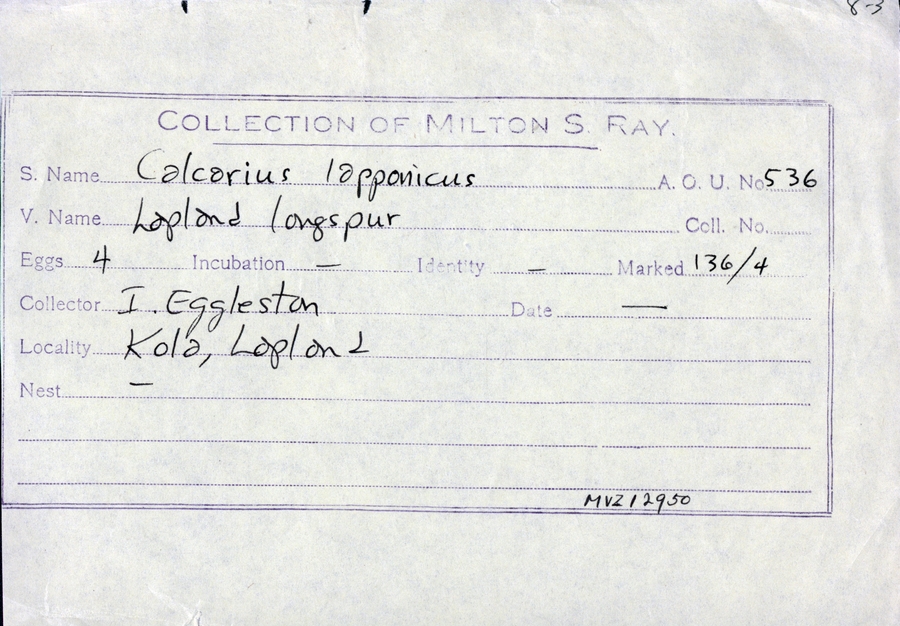 8-3
COLLECTION OF MILTON S. RAY.
S. Name Calcarius lapponicus A. O. U. No 536
V. Name Lapland longspur Coll. No.
Eggs 4 Incubation — Identity — Marked 136/4
Collector I. Eggleston Date —
Locality Kola, Lapland
Nest —
MVZ12950